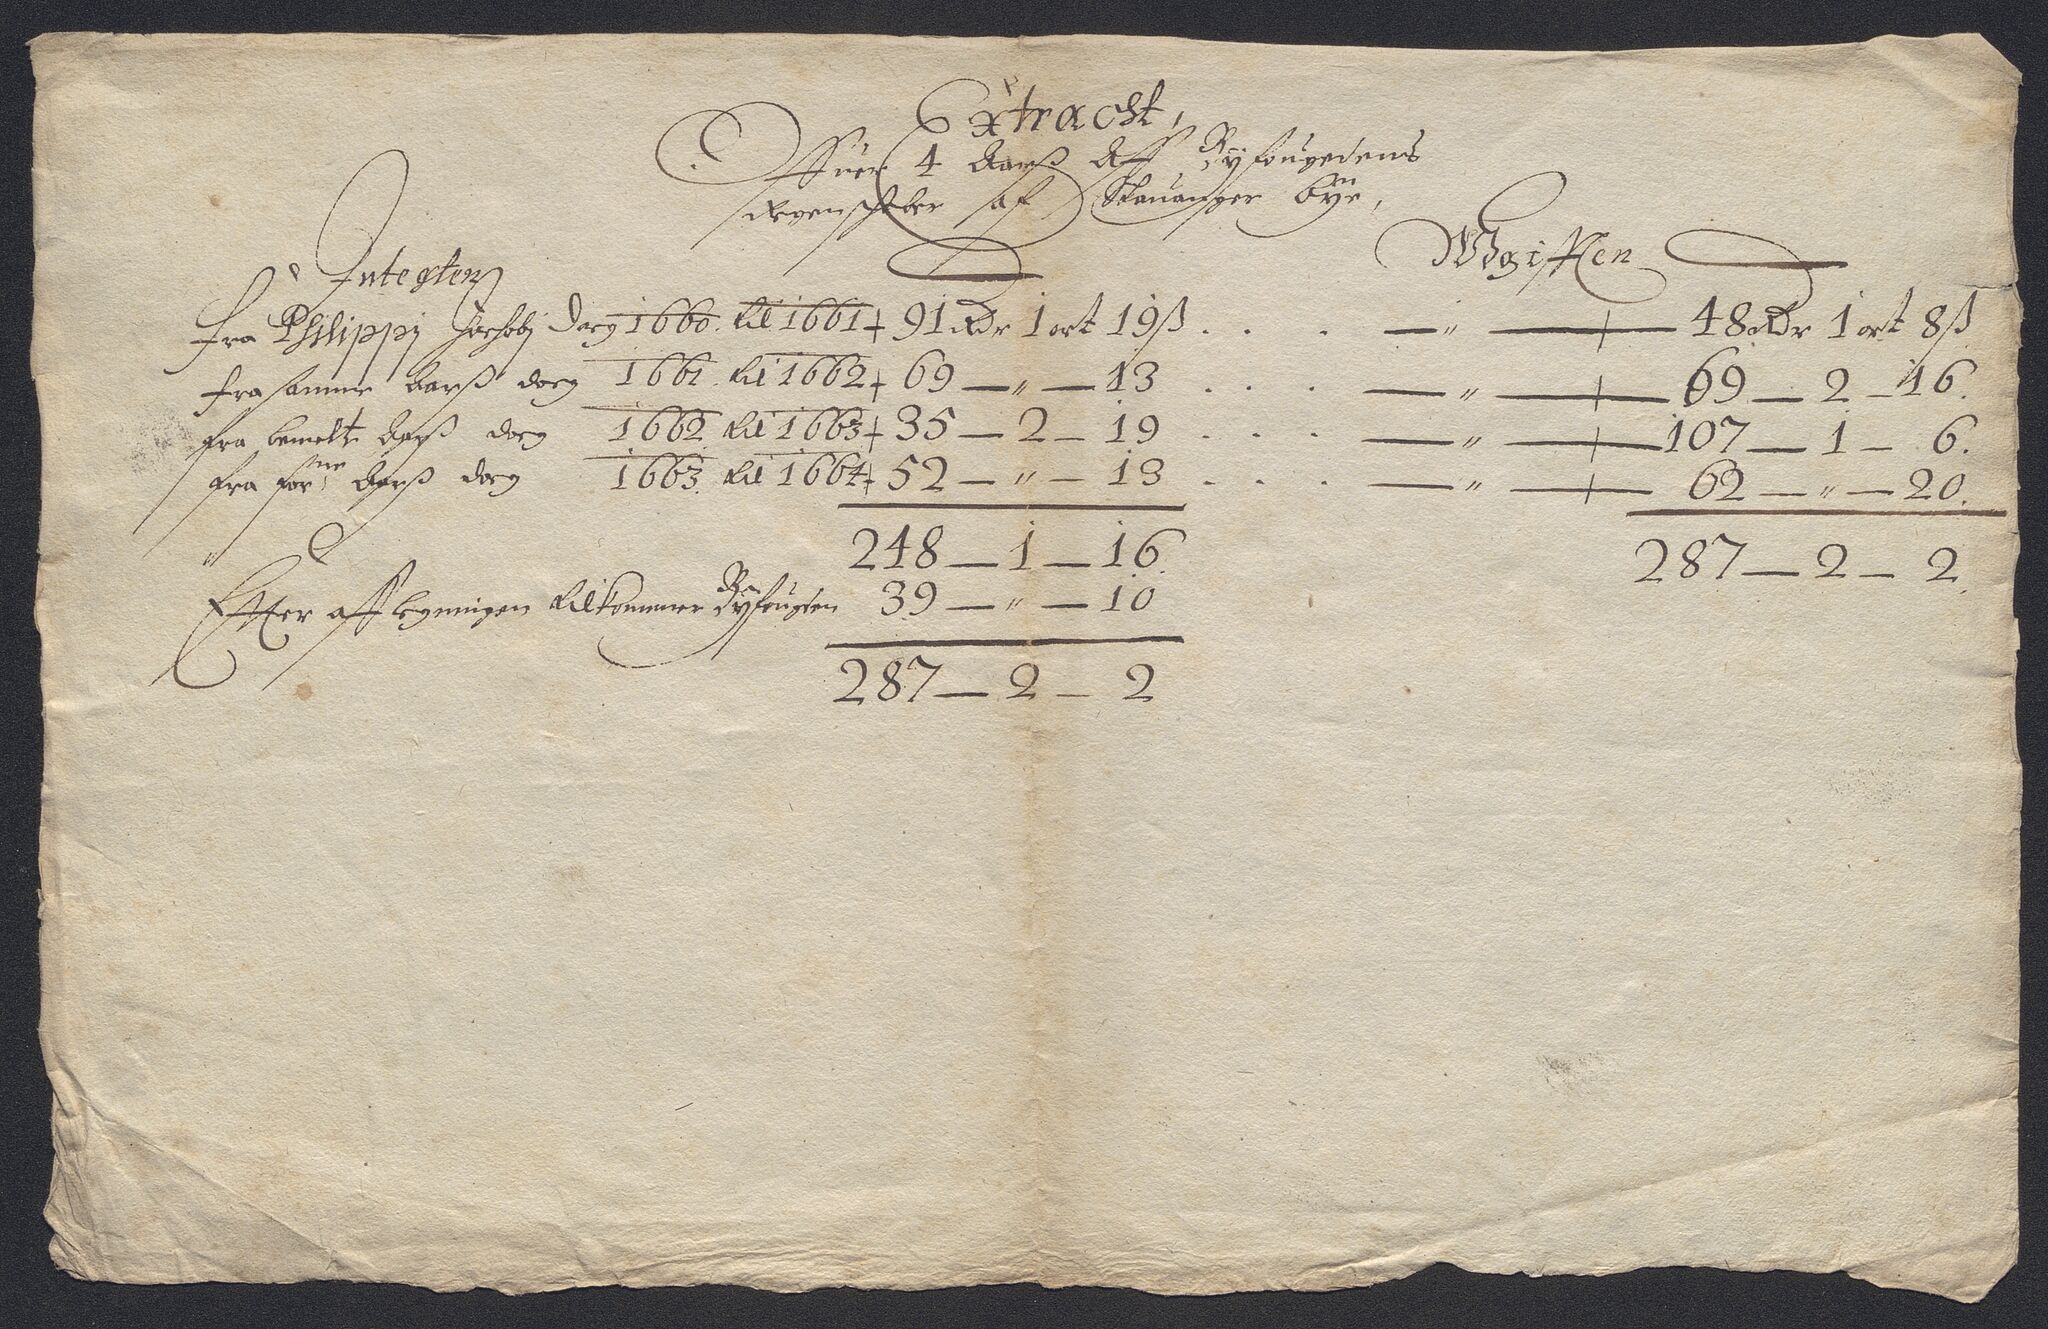 Extracht,
Offuer 4 Aarß Aff Byfougedens
Regenschaber af Stauanger bÿe,
Integten
Wdgifften
fra Philippj Jacobj dag 1660. til 1661 91 Rdr 1 ort 19 ß . . . — „ — 48 Rdr 1 ort 8 ß
fra samme Aarß dag 1661. til 1662 69 — „ — 13 . . . — „ — 69 — 2 — 16.
fra bemelte Aarß dag 1662 til 1663 35 — 2 — 19 . . . — „ — 107 — 1 — 6.
fra forne Aarß dag 1663. til 1664 52 — „ — 13 . . . — „ — 62 — „ — 20.
248 — 1 — 16.
287 — 2 — 2.
Effter aff Regningen tilkommer Byfougten 39 — „ — 10
287 — 2 — 2